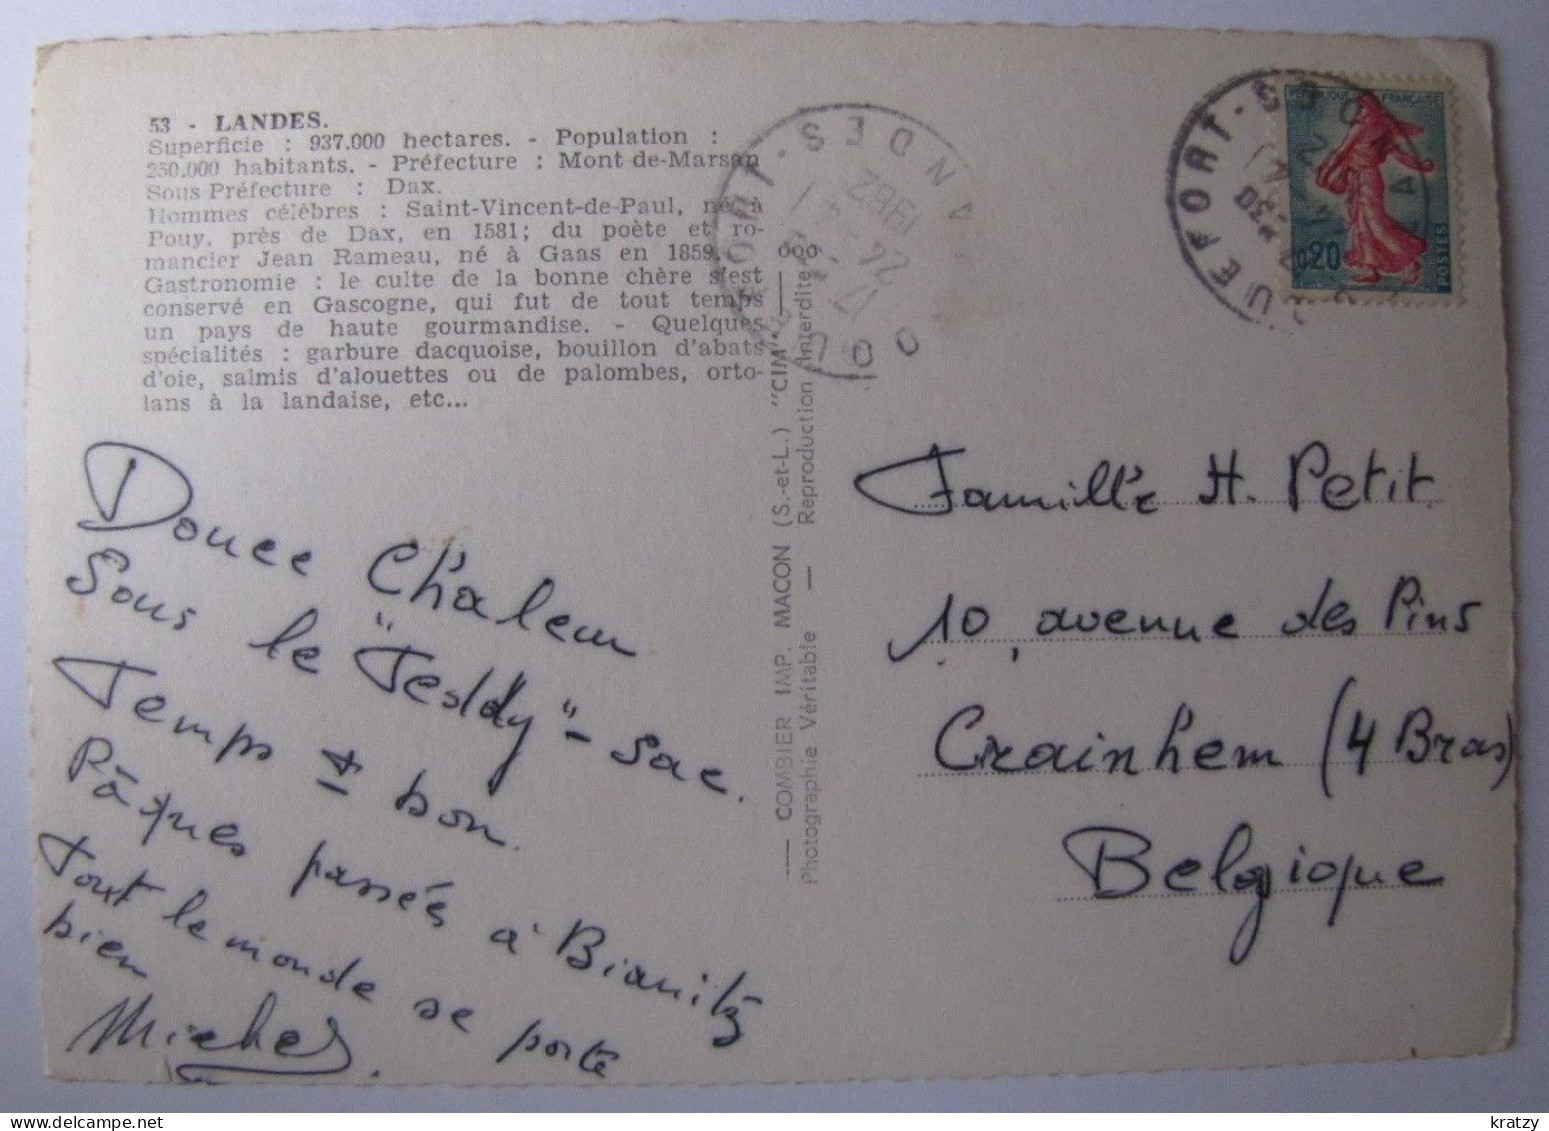 53 - LANDES.
Superficie : 937.000 hectares. - Population :
250.000 habitants. - Préfecture : Mont-de-Marsan
Sous-Préfecture : Dax.
Hommes célèbres : Saint-Vincent-de-Paul, né à
Pouy, près de Dax, en 1581; du poète et ro-
mancier Jean Rameau, né à Gaas en 1859.
Gastronomie : le culte de la bonne chère s'est
conservé en Gascogne, qui fut de tout temps
un pays de haute gourmandise. - Quelques
spécialités : garbure dacquoise, bouillon d'abats
d'oie, salmis d'alouettes ou de palombes, orto-
lans à la landaise, etc...
Douce Chaleur
Sous le "Teddy" - sac.
Temps ± bon.
Pâques passées à Biarritz
Tout le monde se porte
bien
Michel
COMBIER IMP. MACON (S.-et-L.) "CIM"
Photographie Véritable — Reproduction Interdite
ROQUEFORT - LANDES
17 H
24 - 4
1962
ROQUEFORT - LANDES
RÉPUBLIQUE FRANÇAISE
0,20
POSTES
Famille H. Petit
10, avenue des Pins
Crainhem (4 Bras)
Belgique
kratzy